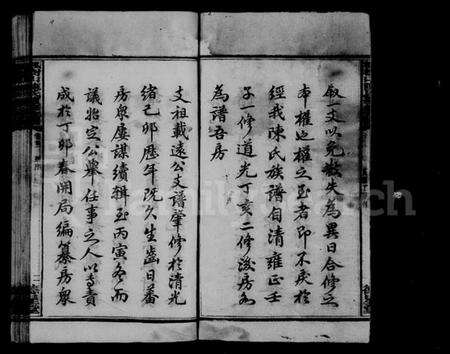 叙一支以免散失為異日合修之
本權也權之至者即不戾於
經我陳氏族譜自清雍正壬
子一修道光丁亥二修浚房為
為譜吾房
支祖載遠公支譜肇修於清光
緒己卯歷年既久生齒日蕃
房眾屢謀續輯至丙寅冬而
議始定公舉任事之人以專責
成於丁卯春開局編纂房眾